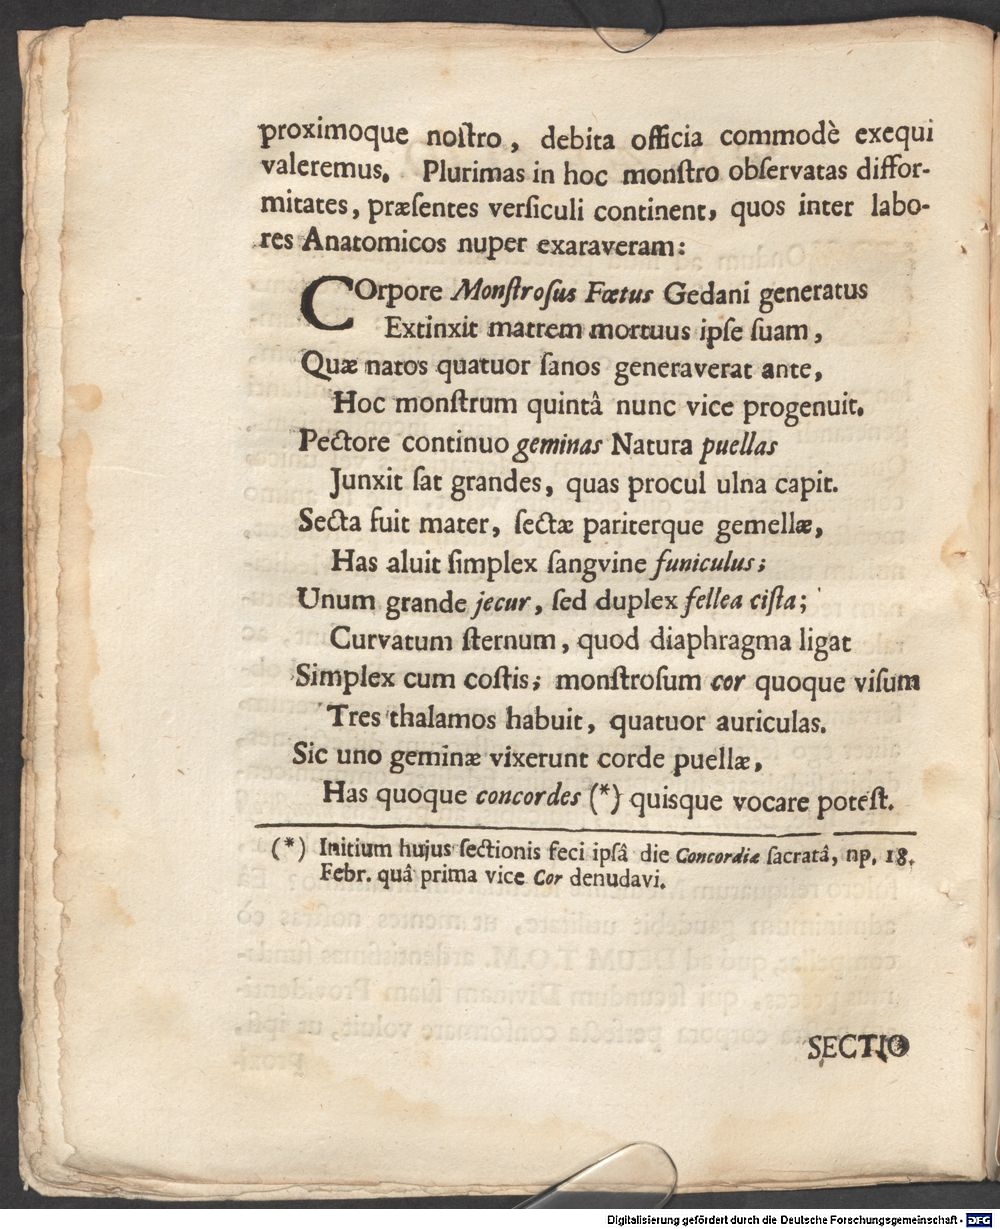 proximoque noſtro, debita officia commodè exequi
valeremus. Plurimas in hoc monſtro obſervatas diffor-
mitates, præſentes verſiculi continent, quos inter labo-
res Anatomicos nuper exaraveram:
COrpore Monſtroſus Fœtus Gedani generatus
Extinxit matrem mortuus ipſe ſuam,
Quæ natos quatuor ſanos generaverat ante,
Hoc monſtrum quintâ nunc vice progenuit.
Pectore continuo geminas Natura puellas
Junxit ſat grandes, quas procul ulna capit.
Secta fuit mater, ſectæ pariterque gemellæ,
Has aluit ſimplex ſangvine funiculus;
Unum grande jecur, ſed duplex fellea ciſta;
Curvatum ſternum, quod diaphragma ligat
Simplex cum coſtis; monſtroſum cor quoque viſum
Tres thalamos habuit, quatuor auriculas.
Sic uno geminæ vixerunt corde puellæ,
Has quoque concordes (*) quisque vocare poteſt.
(*) Initium hujus ſectionis feci ipſâ die Concordiæ ſacratâ, np. 18.
Febr. quâ prima vice Cor denudavi.
SECTIO
Digitalisierung gefördert durch die Deutsche Forschungsgemeinschaft - DFG